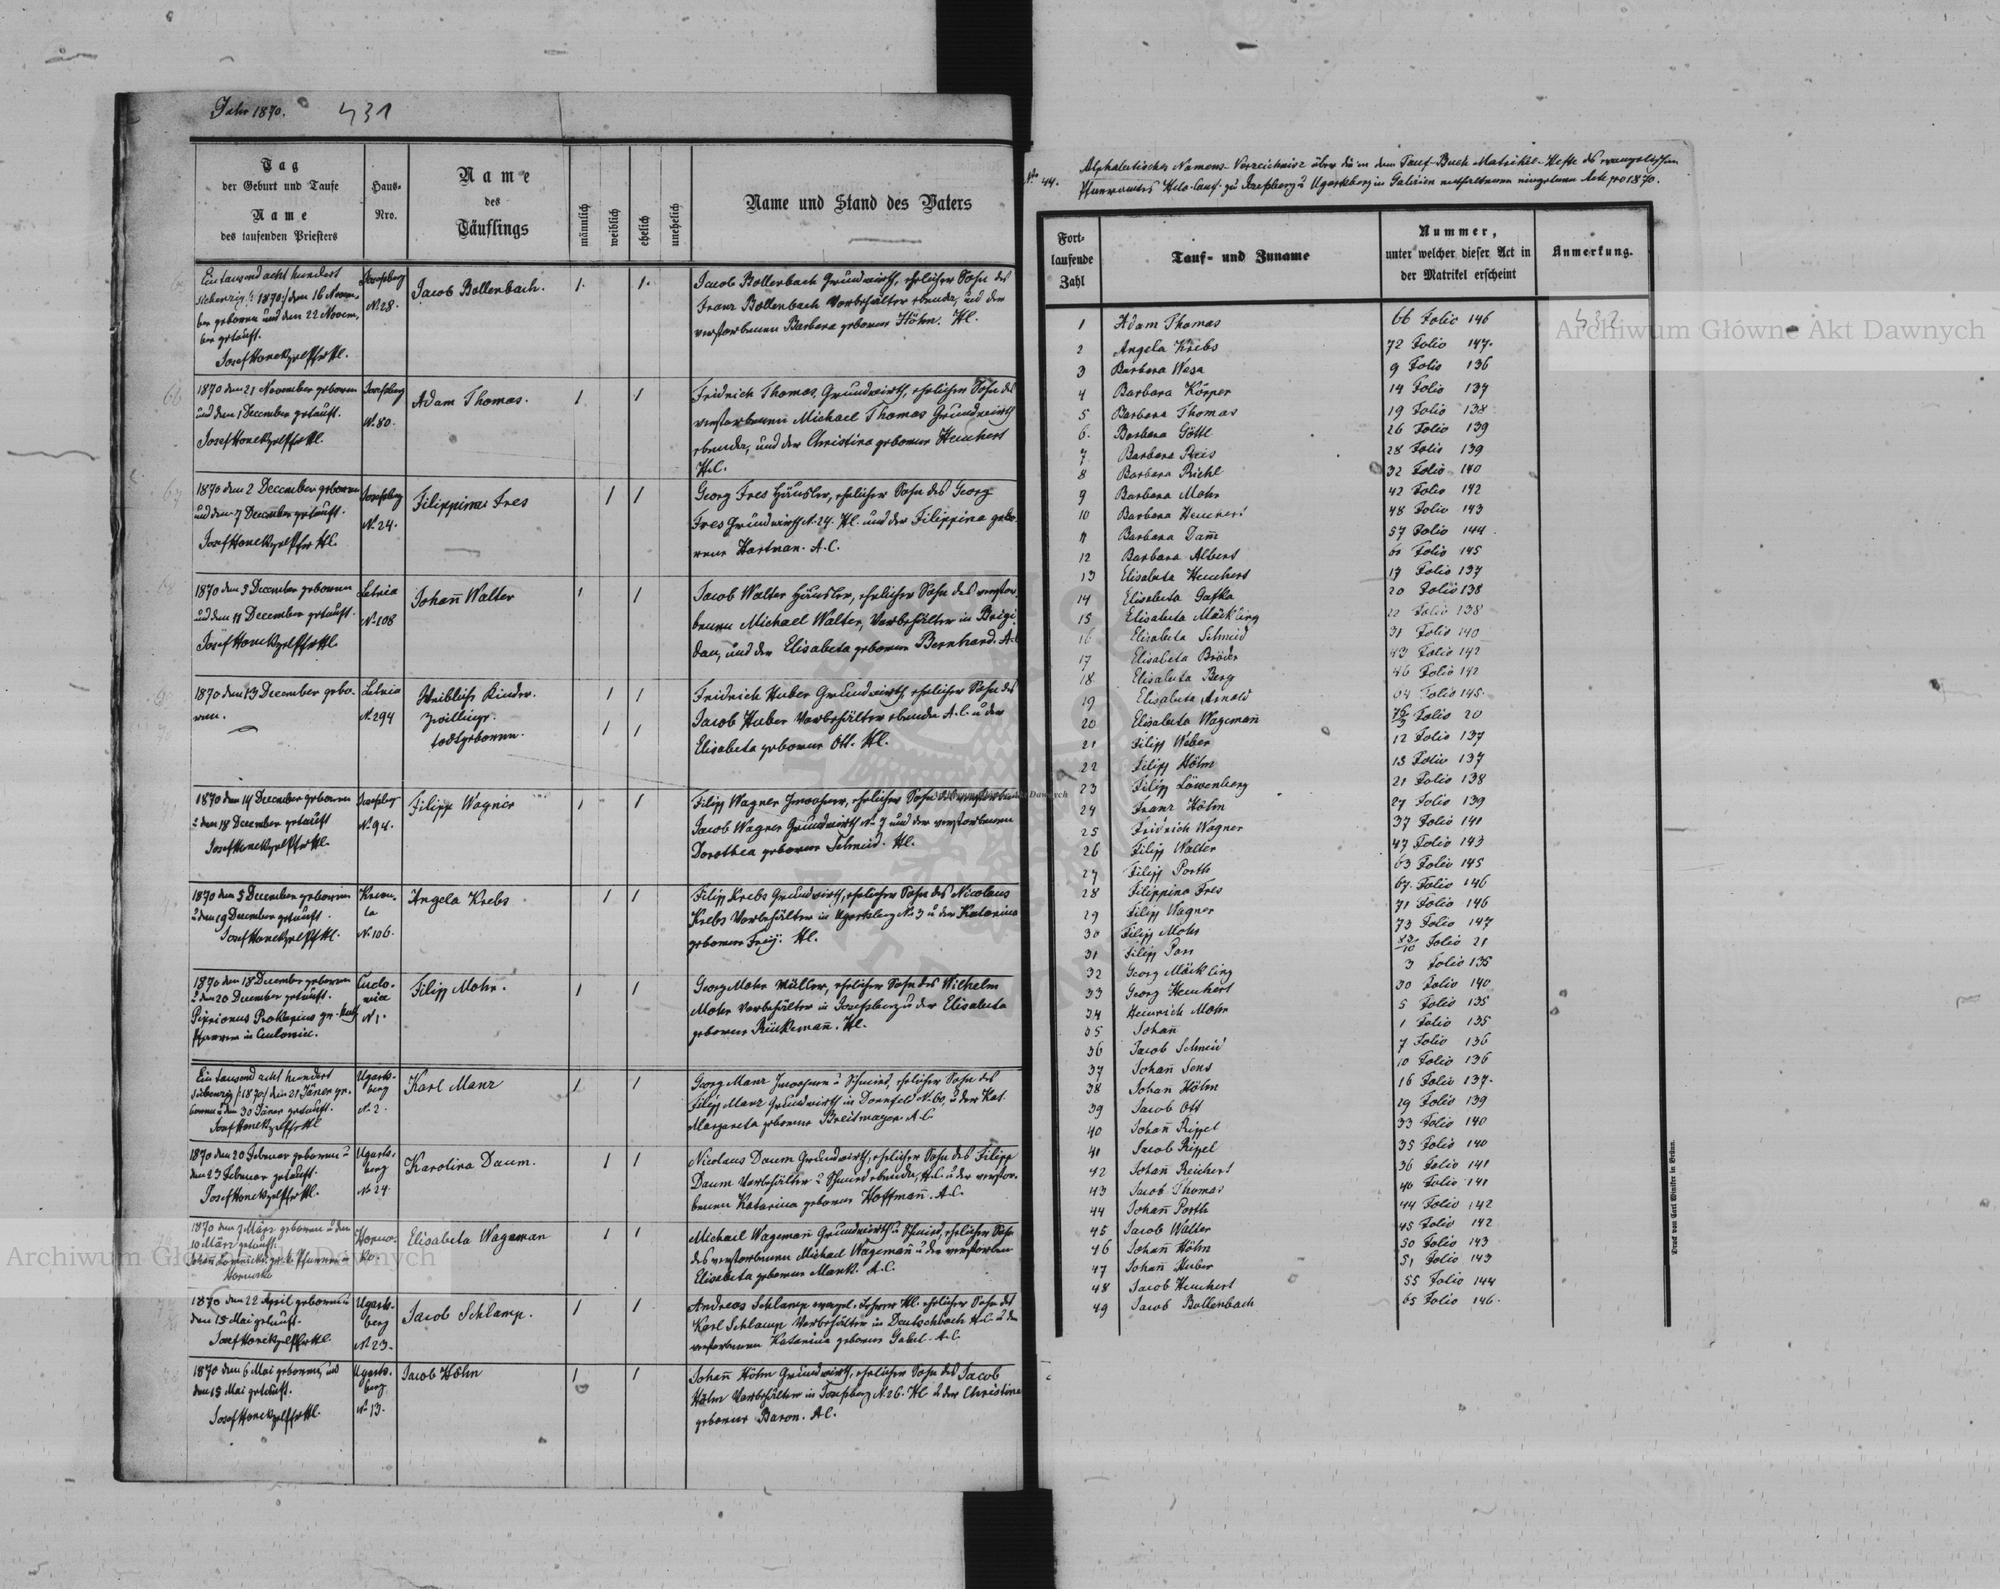 Jahr 1870. 431
Tag
der Geburt und Taufe
Name
des taufenden Priesters
Haus-
Nro.
Name
des
Täuflings
männlich
weiblich
ehelich
unehelich
Name und Stand des Vaters
Ein tausend acht hundert
siebenzig /: 1870 :/ den 16 Novem-
ber geboren und den 22 Novem,
ber getauft.
Josefsberg
N. 28.
Jacob Bollenbach.
1.
1.
Jacob Bollenbach Grundwirth, ehelicher Sohn des
Franz Bollenbach Vorbehälter ebenda, und der
verstorbenen Barbara geborene Höhn. Hl.
66
1870 den 21 November geboren
und den 1 December getauft.
Josefsberg
N. 80.
Adam Thomas.
1
1
Fridrich Thomas, Grundwirth, ehelicher Sohn des
verstorbenen Michael Thomas Grundwirth
ebenda, und der Christina geborene Heuchert
H.C.
67
1870 den 2 December geboren
und den 7 December getauft.
Josefsberg
No 24.
Filippina Fres
1
1
Georg Fres Häusler, ehelicher Sohn des Georg
Fres Grundwirth N. 24. Hl. und der Filippina gebo-
rene Hartman. A.C.
1870 den 3 December geboren
und den 11 December getauft.
Letnia
No 108
Johañ Walter
1
1
Jacob Walter Häusler, ehelicher Sohn des verstor-
benen Michael Walter, Vorbehälter in Brigi-
dau, und der Elisabeta geborene Bernhard. A.C
1870 den 13 December gebo-
ren.
Letnia
N. 294
Weibliche Kinder.
Zwillinge.
todtgeboren.
1
1
1
1
Fridrich Huber Grundwirth, ehelicher Sohn des
Jacob Huber Vorbehälter ebenda A.C. u der
Elisabeta geborene Ott. Hl.
1870 den 14 December geboren
u den 18 December getauft
Josefsberg
No 94.
Filipp Wagner
1
1
Filipp Wagner Inwohner, ehelicher Sohn des verstorbenen
Jacob Wagner Grundwirth No 7 und der verstorbenen
Dorothea geborene Schmid. Hl.
1870 den 5 December geboren
u den 19 December getauft.
N. 106.
Angela Krebs
1
1
Filipp Krebs Grundwirth, ehelicher Sohn des Nicolaus
Krebs Vorbehälter in Ugartsberg No 3 u der Katarina
geborene Frey. Hl.
1870 den 18 December geboren
u den 20 December getauft.
N 1.
Filipp Mohr.
1
1
Georg Mohr Müller, ehelicher Sohn des Wilhelm
Mohr Vorbehälter in Josefsberg u der Elisabeta
geborene Rückemañ. Hl.
Ein tausend acht hundert
siebenzig /: 1870 :/ den 21 Jäner ge-
boren u den 30 Jäner getauft.
Ugarts-
berg
N. 2.
Karl Manz
1
1
Georg Manz Inwohner u Schmied, ehelicher Sohn des
Filipp Manz Grundwirth in Dornfeld No 60, u der Kat.
Margareta geborene Breitmayer. A.C.
1870 den 20 Februar geboren u
den 23 Februar getauft.
Ugarts-
berg
No 24.
Karolina Daum.
1
1
Nicolaus Daum Grundwirth, ehelicher Sohn des Filipp
Daum Vorbehälter u Schmied ebenda, H.C. u der verstor-
benen Katarina geborene Hoffmañ. A.C.
1870 den 7 März geboren u den
10 März getauft.
Elisabeta Wageman
1
1
Michael Wagemañ Grundwirth u Schmied, ehelicher Sohn
des verstorbenen Michael Wagemañ u der verstorben
Elisabeta geborene Mank. A.C.
1870 den 22 April geboren u
den 15 Mai getauft.
Ugarts-
berg
No 23.
Jacob Schlamp.
1
1
Andreas Schlamp evangel. Lehrer Hl. ehelicher Sohn des
Karl Schlamp Vorbehälter in Deutschbach H.C. u der
verstorbenen Katarina geborene Gabel. A.C.
1870 den 6 Mai geboren, und
den 15 Mai getauft.
Ugarts-
berg
No 13.
Jacob Höhn
1
1
Johañ Höhn Grundwirth, ehelicher Sohn des Jacob
Höhn Vorbehälter in Josefsberg N. 26. Hl. u der Christina
geborene Baron. A.C.
No 44.
Alphabetisches Namens-Verzeichniss über die in dem Tauf-Buch Matrikel-Hefte des evangelischen
Pfarramtes Helv. Conf. zu Josefsberg u Ugartsberg in Galizien enthaltenen einzelnen Acte pro 1870.
Fort-
laufende
Zahl
Tauf- und Zuname
Nummer,
unter welcher dieser Act in
der Matrikel erscheint
Anmerkung.
432
1 Adam Thomas 66 Folio 146
2 Angela Krebs 72 Folio 147.
3 Barbara Wesa 9 Folio 136
4 Barbara Körper 14 Folio 137
5 Barbara Thomas 19 Folio 138
6. Barbara Göttl 26 Folio 139
7 Barbara Reis 28 Folio 139
8 Barbara Richl 32 Folio 140
9 Barbara Mohr 42 Folio 142
10 Barbara Heuchert 48 Folio 143
11 Barbara Dam̃ 57 Folio 144
12 Barbara Albert 61 Folio 145
13 Elisabeta Heuchert 17 Folio 137
14 Elisabeta Gafka 20 Folio 138
15 Elisabeta Mäckling 22 Folio 138
16 Elisabeta Schmid 31 Folio 140
17 Elisabeta Bröder 43 Folio 142
18 Elisabeta Berg 46 Folio 142
19 Elisabeta Arnold 64 Folio 145
20 Elisabeta Wagemañ 76/3 Folio 20
21 Filipp Weber 12 Folio 137
22 Filipp Höhn 13 Folio 137
23 Filipp Löwenberg 21 Folio 138
24 Franz Höhn 27 Folio 139
25 Fridrich Wagner 37 Folio 141
26 Filipp Walter 47 Folio 143
27 Filipp Porth 63 Folio 145
28 Filippina Fres 67. Folio 146
29 Filipp Wagner 71 Folio 146
30 Filipp Mohr 73 Folio 147
31 Filipp 83/10 Folio 21
32 Georg Mäckling 3 Folio 135
33 Georg Heuchert 30 Folio 140
34 Heinrich Mohr 5 Folio 135
35 Johañ 1 Folio 135
36 Jacob Schmid 7 Folio 136
37 Johañ Sons 10 Folio 136
38 Johañ Höhn 16 Folio 137.
39 Jacob Ott 29 Folio 139
40 Johañ Rippel 33 Folio 140
41 Jacob Rippel 35 Folio 140
42 Johañ Reichert 36 Folio 141
43 Jacob Thomas 40 Folio 141
44 Johañ Porth 44 Folio 142
45 Jacob Walter 45 Folio 142
46 Johañ Höhn 50 Folio 143
47 Johañ Huber 51 Folio 143
48 Jacob Heuchert 55 Folio 144
49 Jacob Bollenbach 65 Folio 146.
Druck von Carl Winiker in Brünn.
Archiwum Główne Akt Dawnych
Archiwum Główne Akt Dawnych